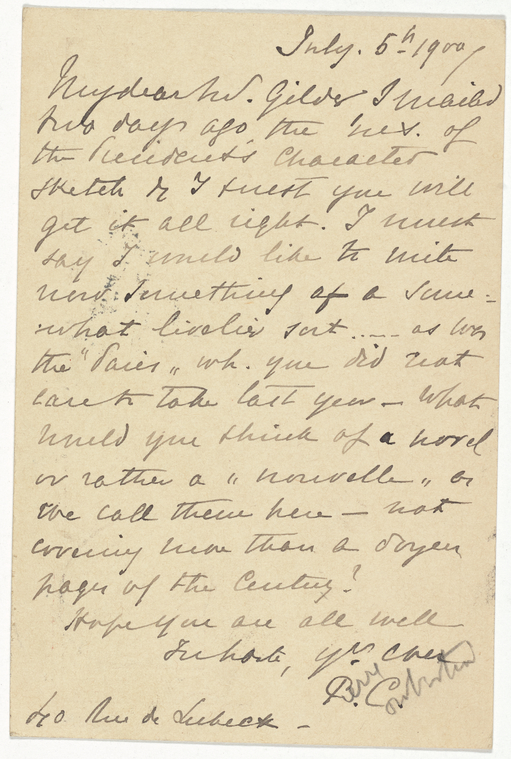 July. 5th 1900/
My dear Mr. Gilder I mailed
two days ago the ms. of
the President's character
sketch & I trust you will
get it all right. I must
say I would like to write
now something of a some-
:what livelier sort..... as was
the "Paris" wh. you did not
care to take last year – What
would you think of a novel
or rather a "nouvelle" as
we call them here – not
covering more than a dozen
pages of the Century?
Hope you are all well
In haste, yrs ever
P. C.
40 Rue de Lubeck –